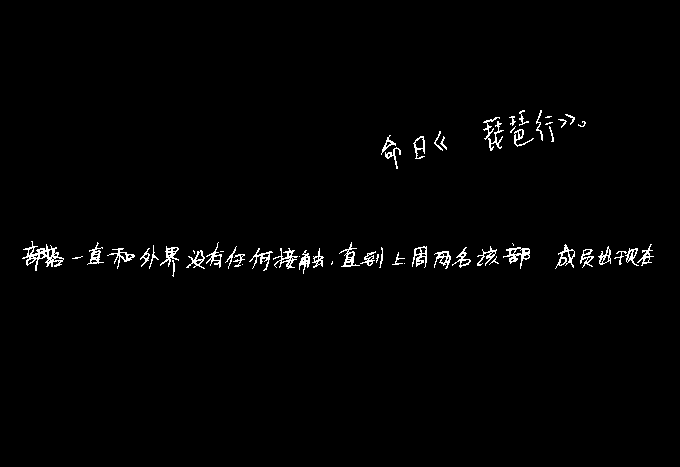 命曰《 琵琶行》。
部落一直和外界没有任何接触，直到上周两名该部 成员出现在